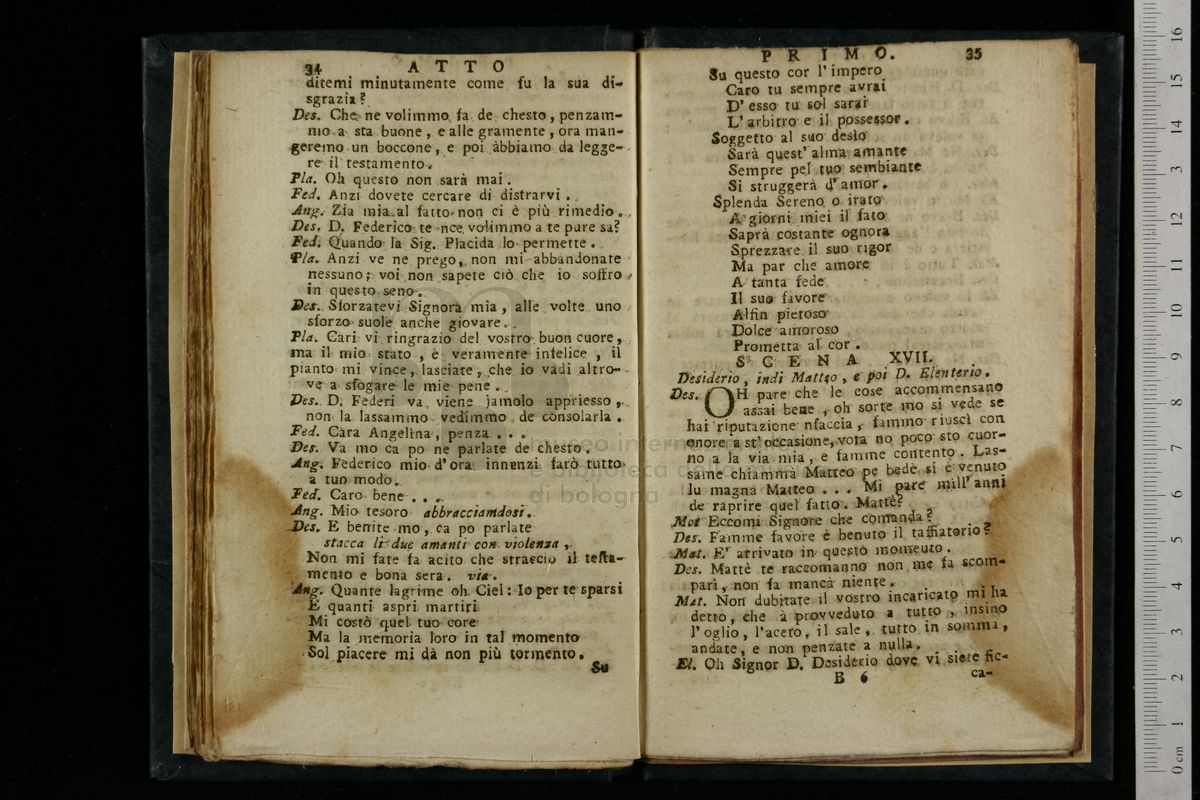 34 ATTO
ditemi minutamente come fu la sua di-
sgrazia?
Des. Che ne volimmo fa de chesto, penzam-
mo a sta buone, e alle gramente, ora man-
geremo un boccone, e poi àbbiamo da legge-
re il testamento.
Pla. Oh questo non sarà mai.
Fed. Anzi dovete cercare di distrarvi.
Ang. Zia mia al fatto non ci è più rimedio.
Des. D. Federico te nce volimmo a te pure sa?
Fed. Quando la Sig. Placida lo permette.
Pla. Anzi ve ne prego, non mi abbandonate
nessuno; voi non sapete ciò che io soffro
in questo seno.
Des. Sforzatevi Signora mia, alle volte uno
sforzo suole anche giovare.
Pla. Cari vi ringrazio del vostro buon cuore,
ma il mio stato, è veramente infelice, il
pianto mi vince, lasciate, che io vadi altro-
ve a sfogare le mie pene.
Des. D. Federi va viene jamolo appriesso,
non la lassammo vedimmo de consolarla.
Fed. Cara Angelina, penza...
Des. Va mo ca po ne parlate de chesto.
Ang. Federico mio d'ora innenzi farò tutto
a tuo modo.
Fed. Caro bene...
Ang. Mio tesoro abbracciamdosi.
Des. E benite mo, ca po parlate
stacca li due amanti con violenza,
Non mi fate fa acito che straccio il testa-
mento e bona sera. via.
Ang. Quante lagrime oh Ciel: Io per te sparsi
E quanti aspri martiri
Mi costò quel tuo core
Ma la memoria loro in tal momento
Sol piacere mi dà non più tormento.
Su
PRIMO. 35
Su questo cor l'impero
Caro tu sempre avrai
D'esso tu sol sarai
L'arbitro e il possessor.
Soggetto al suo desio
Sarà quest'alma amante
Sempre pel tuo sembiante
Si struggerà d'amor.
Splenda Sereno o irato
A giorni miei il fato
Saprà costante ognora
Sprezzare il suo rigor
Ma par che amore
A tanta fede
Il suo favore
Alfin pietoso
Dolce amoroso
Prometta al cor.
SCENA XVII.
Desiderio, indi Matteo, e poi D. Elenterio.
Des. OH pare che le cose accommensano
assai bene, oh sorte mo si vede se
hai riputazione nfaccia, fammo riuscì con
onore a st'occasione, vota no poco sto cuor-
no a la via mia, e famme contento. Las-
same chiammà Matteo pe bedè si è venuto
lu magnà Matteo... Mi pare mill'anni
de raprire quel fatto. Mattè?
Mat Eccomi Signore che comanda?
Des. Famme favore è benuto il taffiatorio?
Mat. E' arrivato in questo momeuto.
Des. Mattè te raccomanno non me fa scom-
parì, non fa mancà niente.
Mat. Non dubitate il vostro incaricato mi ha
detto, che à provveduto a tutto, insino
l'oglio, l'aceto, il sale, tutto in somma,
andate, e non penzate a nulla.
El. Oh Signor D. Desiderio dove vi siete fic-
B 6 ca-
museo interna
e biblioteca della
di bologna
16
15
14
13
12
11
10
9
8
7
6
5
4
3
2
1
0 cm